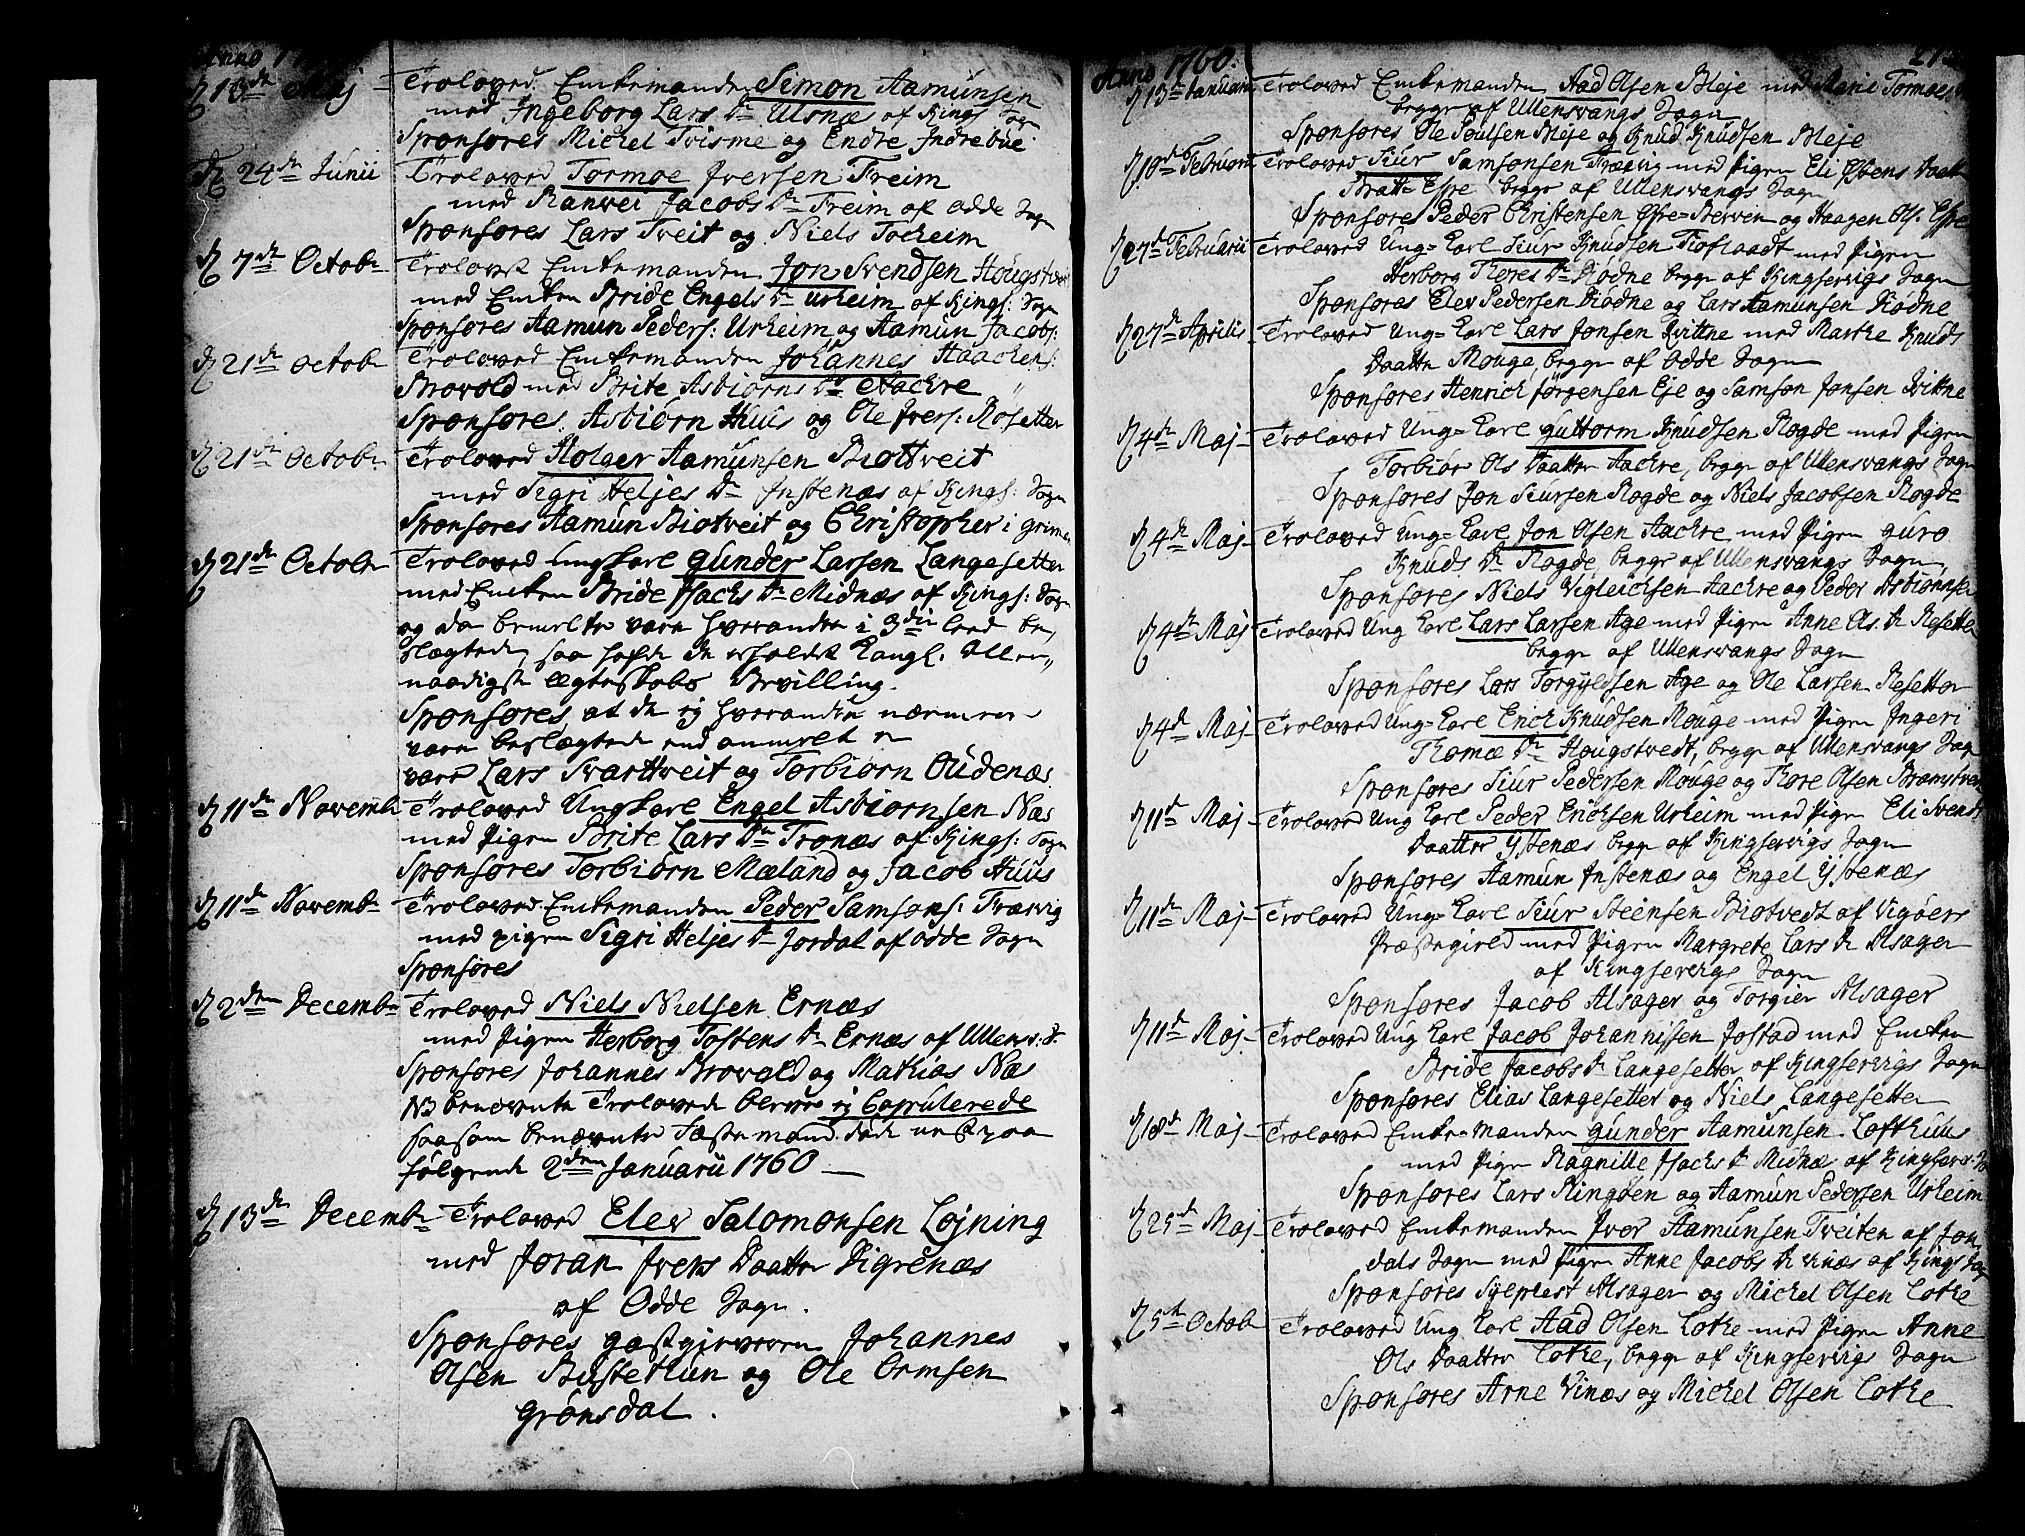 Anno
d 16de Maj Troloved Enkemanden Simon Aamunsen
med Ingeborg Lars Dr Ulsnæs af Kings Sogn
Sponsores Michel Tvisme og Endre Indrebøe
d 24de Junii Troloved Tormoe Iversen Freim
med Ranvei Jacobs Dr Freim af Odde Sogn
Sponsores Lars Tveit og Niels Tocheim
d 7de Octobr Trolovet Enkemanden Jon Svendsen Hougstvei
med Enken Bride Engels Dr Urheim af Kings: Sogn
Sponsores Aamun Peders: Urheim og Aamun Jacobs:
d 21de Octobr Troloved Enkemanden Johannes Haachens:
Brovold med Brite Asbiørns Dr Hackre
Sponsores Asbiørn Huus og Ole Ivers: Rosetter
d 21de Octobr Troloved Holger Aamunsen Biottveit
med Sigri Heljes Dr Instenæs af Kings: Sogn
Sponsores Aamun Biotveit og Christopher i Grimen
d 21de Octobr Troloved Ungkarl Gunder Larsen Langesetter
med Enken Bride Isachs Dr Midnæs af Kings: Sogn
og da bemelte vare hverandre i 3die leed be,,
slægtede, saa hafde de erholdet Kongl. Aller,,
naadigst Ægteskabs Bevilling.
Sponsores at de ej hverandre nærmere
vare beslægtede end anmelt er
vare Lars Svarttveit og Torbiørn Oudenæs
d 11de Novembr Troloved Ungkarl Engel Asbiørnsen Næs
med Pigen Brite Lars Dr Tronæs af Kings: Sogn
Sponsores Torbiørn Mæland og Jacob Huus
d 11de Novembr Troloved Enkemanden Peder Samsons: Træevig
med pigen Sigri Heljes Dr Jordal af Odde Sogn
Sponsores
d 2den Decembr Troloved Niels Nielsen Ernæs
med Pigen Herborg Tostens Dr Ernæs af Ullensv: S.
Sponsores Johannes Brovold og Mathias Næs
NB benævnte Trolovede bleve ej Copulerede
saasom benævnte Fæstemand døde
følgende 2den Januarii 1760
d 13de Decembr Troloved Elev Salomonsen Løjning
med Joran Ivers Daatter Digrenæs
af Odde Sogn.
Sponsores gastgieveren Johannes
Olsen Bustetun og Ole Ormsen
Grønsdal.
Anno 1760.
d 13de Januarii Troloved Enkemanden Aad Olsen Bleje med Marie Tormoes
begge af Ullensvangs Sogn
Sponsores Ole Poulsen Bleje og Knud Knudsen Bleje
d 10de Februarii Troloved Siur Samsonsen Træevig med Pigen Eli Daatter
Bratt-Espe begge af Ullensvangs Sogn
Sponsores Peder Christensen Espe-Berven og Haagen Ols. Espe
d 27de Februarii Troloved Ung-Karl Siur Knudsen Tioflaadt med Pigen
Herborg Thores Dr Diødne begge af Kingservigs Sogn
Sponsores Elev Pedersen Diødne og Lars Aamunsen Diødne
d 27de Aprilis Troloved Ung-Karl Lars Jonsen Qvittne med Marthe Knuds
Daatter Mouge, begge af Odde Sogn
Sponsores Henrich Jørgensen Eje og Samson Jonsen Qvitne
d 4de Maj Troloved Ung-Karl Guttorm Knudsen Rogde med Pigen
Torbiør Ols Daatter Aachre, begge af Ullensvangs Sogn
Sponsores Jon Siursen Rogde og Niels Jacobsen Rogde
d 4de Maj Troloved Ung-Karl Jon Olsen Aachre med Pigen Guro
Knuds Dr Rogde, begge af Ullensvangs Sogn
Sponsores Niels Vigleichsen Aachre og Peder Asbiørnsen
d 4de Maj Troloved Ung Karl Lars Larsen Age med Pigen Anne Ols Dr Resetter
begge af Ullensvangs Sogn
Sponsores Lars Torgyldsen Age og Ole Larsen Resetter
d 4de Maj Troloved Ung-Karl Erich Knudsen Mouge med Pigen Ingeri
Thomæ Dr Hougstvedt, begge af Ullensvangs Sogn
Sponsores Siur Pedersen Mouge og Thore Olsen
d 11de Maj Troloved Ung Karl Peder Erichsen Urheim med Pigen Eli Svends
Daatter Ystenæs begge af Kingservigs Sogn
Sponsores Aamun Instenæs og Engel Ystenæs
d 11de Maj Troloved Ung-Karl Siur Steensen Biotvedt af Vigøers
Præstegield med Pigen Margrete Lars Dr Alsager
af Kingservigs Sogn
Sponsores Jacob Alsager og Torgier Alsager
d 11de Maj Troloved Ung Karl Jacob Johannissen Jostad med Enken
Bride Jacobs Dr Langesetter af Kingservigs Sogn
Sponsores Elias Langesetter og Niels Langesetter
d 18de Maj Troloved Enke-manden Gunder Aamunsen Lofthuus
med Pigen Ragnille Isachs Dr Midnæs af Kingserv: S.
Sponsores Lars Ringøen og Aamun Pedersen Urheim
d 25de Maj Troloved Enkemanden Iver Aamunsen Tveiten af Jon
dals Sogn med Pigen Anne Jacobs Dr Vinæs af Kings Sogn
Sponsores Sylvest Alsager og Michel Olsen Lothe
d 5te Octob Troloved Ung Karl Aad Olsen Lothe med Pigen Anne
Ols Daatter Lothe, begge af Kingservigs Sogn
Sponsores Arne Vinæs og Michel Olsen Lothe